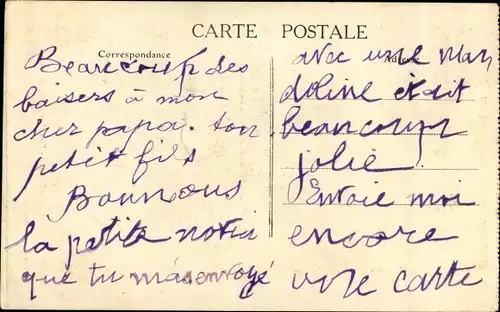 CARTE POSTALE
Correspondance
Adresse
Beaucoup des
baisers à mon
cher papa. ton
petit fils
la petite
que tu mas envoyé
avec une man
doline était
beaucoup
jolie.
Envoie moi
encore
une carte